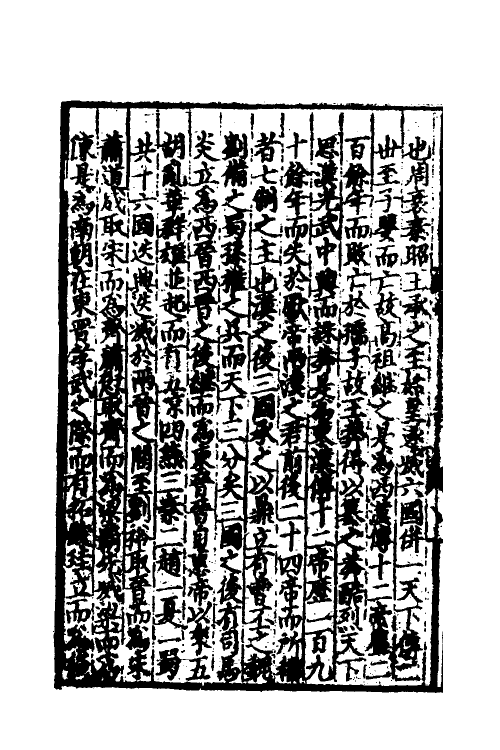 也周衰秦昭王承之至始皇遂滅六國併一天下傳二
世至子嬰而亡故高祖繼之是為西漢傳十二帝歷二
百餘年而敗亡於孺子故王莽得以簒之莽酷烈天下
思漢光武中興而誅莽是為東漢傳十二帝歷一百九
十餘年而失於獻帝兩漢之君前後二十四帝而所稱
者七制之主也漢之後三國承之以鼎立有曹丕之魏
劉備之蜀孫權之吳而天下三分矣三國之後有司馬
炎立為西晉西晉之後繼而為東晉晉自惠帝以來五
胡亂華群雄並起而有五凉四燕三秦二趙一夏一蜀
共十六國迭興迭滅於兩晉之間至劉裕取晉而為宋
蕭道成取宋而為齊蕭衍取齊而為梁霸先滅梁而為
陳是為南朝在東晉孝武之際而有拓跋珪立而為